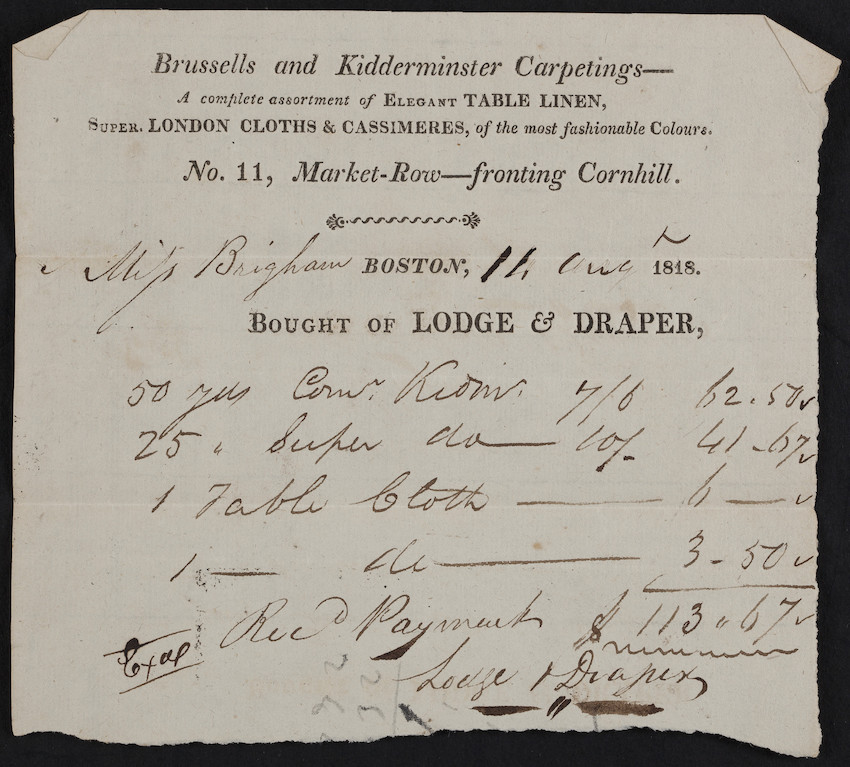 Brussells and Kidderminster Carpetings—
A complete assortment of ELEGANT TABLE LINEN,
SUPER. LONDON CLOTHS & CASSIMERES, of the most fashionable Colours.
No. 11, Market-Row—fronting Cornhill.
Miss Brigham BOSTON, 14 Aug 1818.
BOUGHT OF LODGE & DRAPER,
50 yds Comr. Kidmr. 7/6 62.50
25 " Super do — 10/- 41-67
1 Table Cloth — 6 —
1 — do — 3-50
Recd Payment $ 113"67
Lodge & Draper